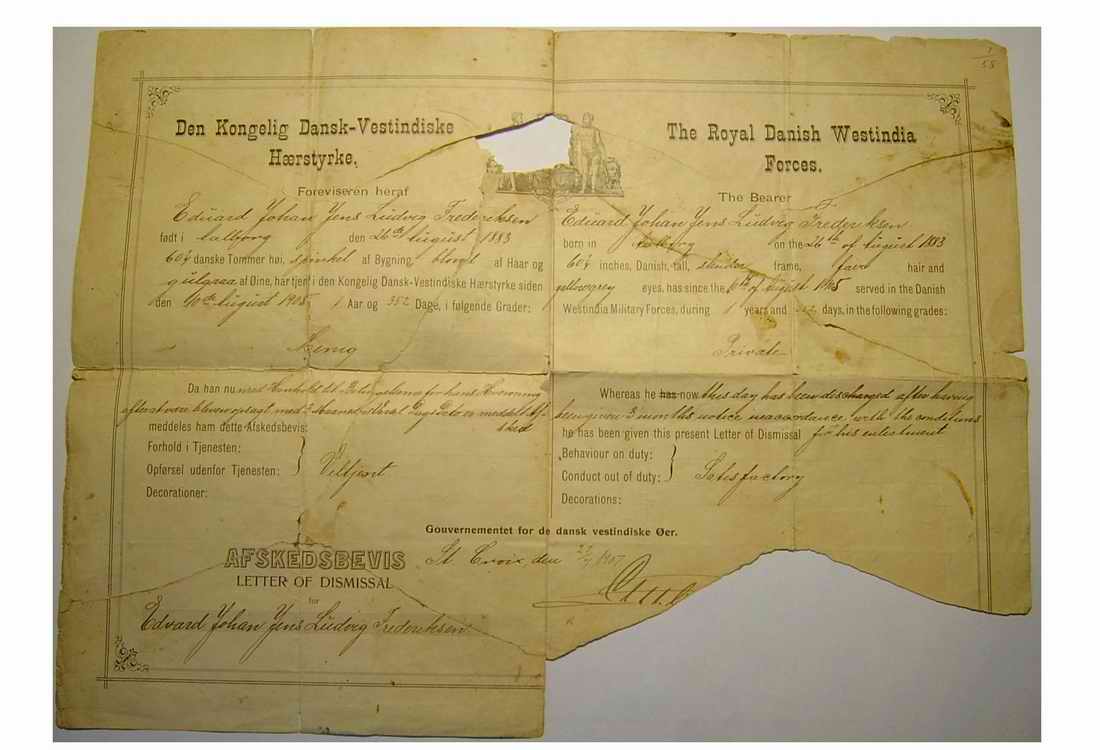 1
55
Den Kongelig Dansk-Vestindiske
Hærstyrke.
Foreviseren heraf
Eduard Johan Jens Ludvig Frederiksen
født i Aalborg den 26de August 1883
60¾ danske Tommer høi, spinkel af Bygning, blond af Haar og
gulgraa af Øine, har tjent i den Kongelig Dansk-Vestindiske Hærstyrke siden
den August 1905 1 Aar og 352 Dage, i følgende Grader:
Menig
Da han nu med Henhold til Betingelserne for hans Hverving
efter at være bleven opsagt med 3 Maaneders Dato er meddelt Af-
sked
meddeles ham dette Afskedsbevis:
Forhold i Tjenesten:
Opførsel udenfor Tjenesten:
Veltjent
Decorationer:
The Royal Danish Westindia
Forces.
The Bearer
Eduard Johan Jens Ludvig Frederiksen
born in Aalborg on the 26th of August 1883
60¾ inches, Danish, tall, slender frame, fair hair and
yellowgrey eyes, has since the of August 1905 served in the Danish
Westindia Military Forces, during 1 years and 352 days, in the following grades:
Private
Whereas he has now this day has been discharged after having
been given 3 months notice in accordance with the conditions
he has been given this present Letter of Dismissal for his enlistment
Behaviour on duty:
Conduct out of duty:
Satisfactory
Decorations:
Gouvernementet for de dansk vestindiske Øer.
St. Croix den 1907
AFSKEDSBEVIS
LETTER OF DISMISSAL
for
Edvard Johan Jens Ludvig Frederiksen